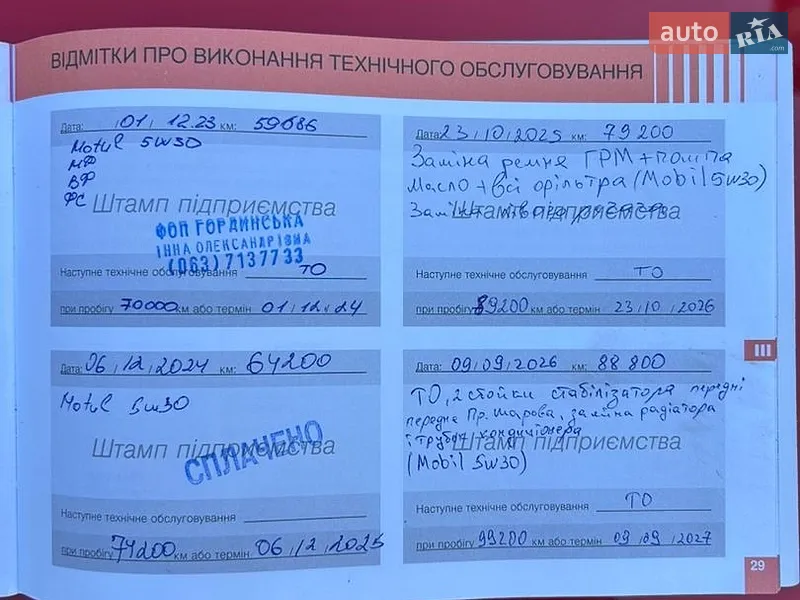 auto RIA .com
ВІДМІТКИ ПРО ВИКОНАННЯ ТЕХНІЧНОГО ОБСЛУГОВУВАННЯ
Дата: 01 / 12.23 км: 59686
Motul 5W30
МФ
ВФ
ФС
Штамп підприємства
ФОП ГОРДИНСЬКА
ІННА ОЛЕКСАНДРІВНА
(063)7137733
Наступне технічне обслуговування ТО
при пробігу 70000 км або термін 01/12/24
06/12/2024 км: 64200
Motul 5w30
Штамп підприємства
СПЛАЧЕНО
Наступне технічне обслуговування
при пробігу 74200 км або термін 06/12/2025
Дата: 23/10/2025 км: 79200
Заміна ремня ГРМ + помпа
Масло + всі фільтра (Mobil 5w30)
Штамп підприємства
Наступне технічне обслуговування ТО
при пробігу 89200 км або термін 23/10/2026
Дата: 09/09/2026 км: 88 800
ТО, 2 стойки стабілізатора передні
передня Пр. шарова, заміна радіатора
і трубки кондиціонера
Штамп підприємства
(Mobil 5w30)
Наступне технічне обслуговування ТО
при пробігу 99200 км або термін 09/09/2027
III
29